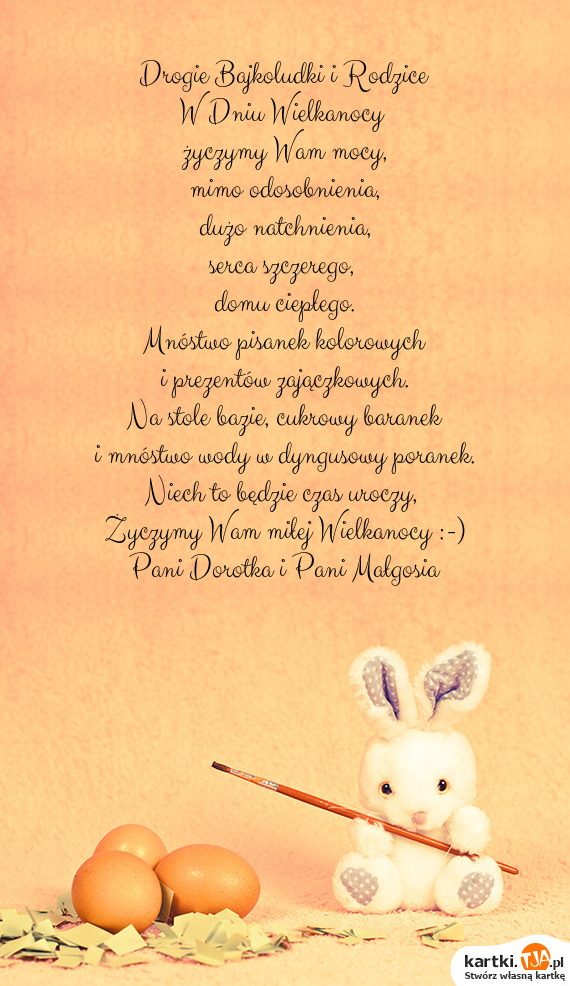 Drogie Bajkoludki i Rodzice
W Dniu Wielkanocy
życzymy Wam mocy,
mimo odosobnienia,
dużo natchnienia,
serca szczerego,
domu ciepłego.
Mnóstwo pisanek kolorowych
i prezentów zajączkowych.
Na stole bazie, cukrowy baranek
i mnóstwo wody w dyngusowy poranek.
Niech to będzie czas uroczy,
Życzymy Wam miłej Wielkanocy :-)
Pani Dorotka i Pani Małgosia
kartki.TJA.pl
Stwórz własną kartkę